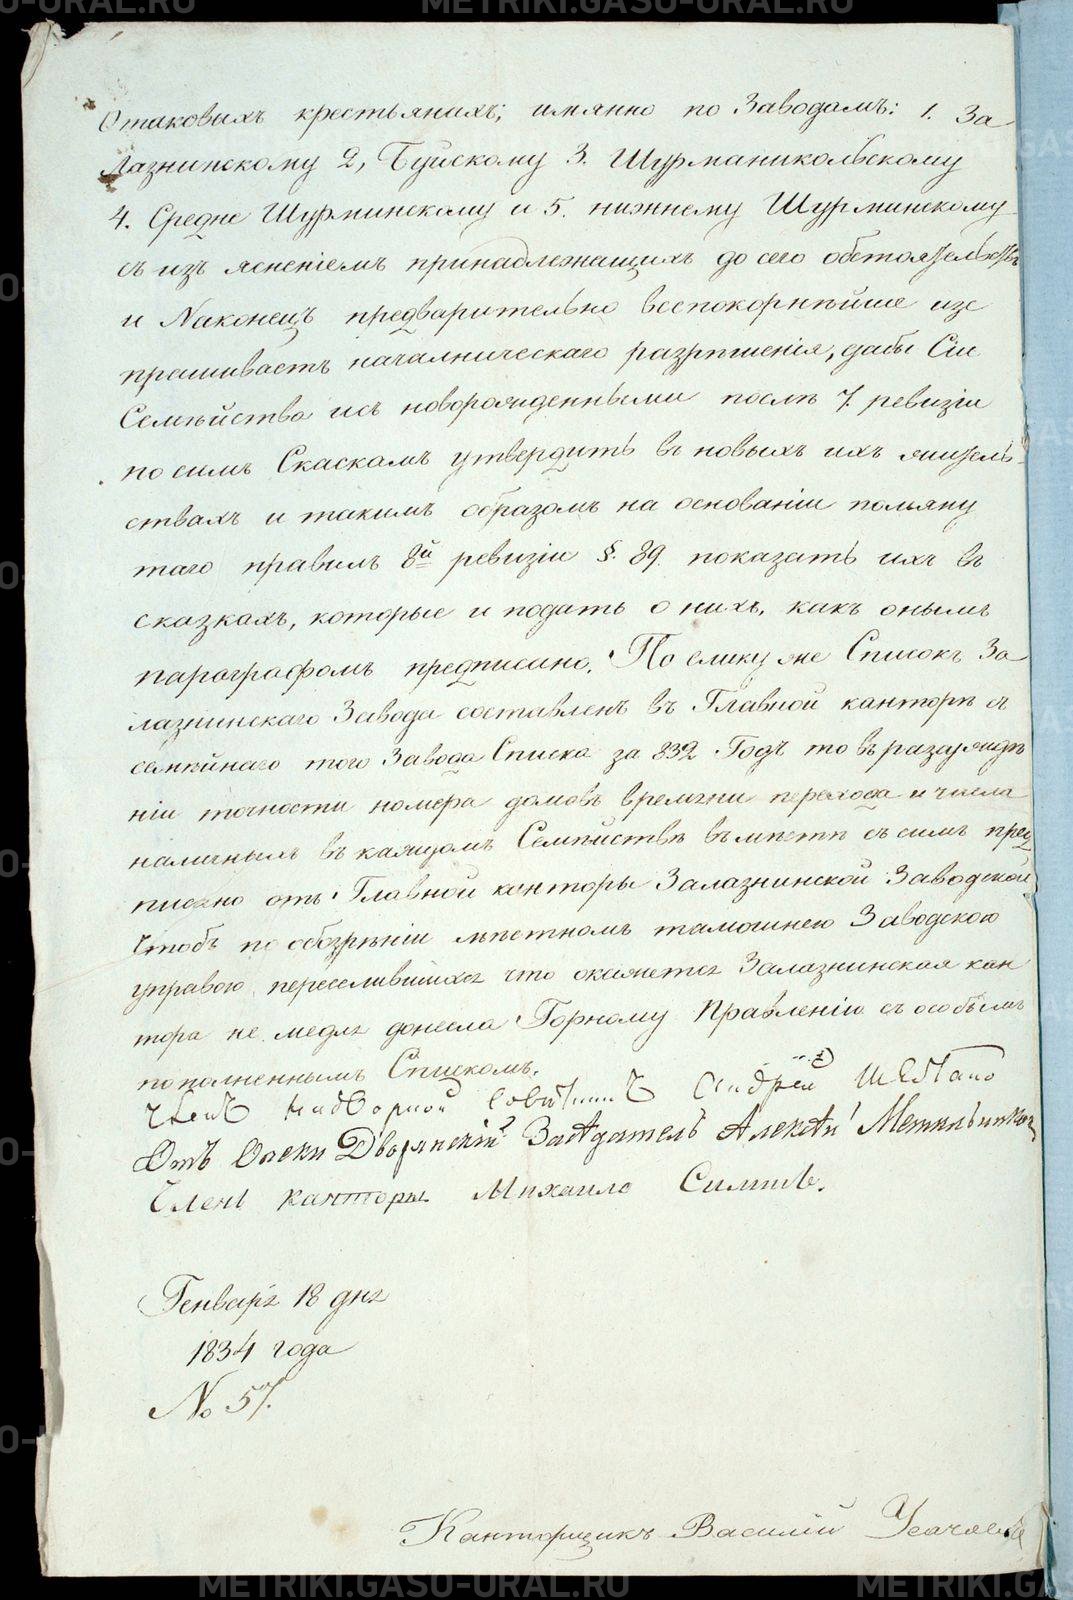 Отаковыхъ крестьянахъ; имянно по Заводамъ: 1. За
Лазнинскому 2, Буйскому 3. Шурманикольскому
4. Средне Шурминскому и 5. нижнему Шурминскому
съ изъ ясненіемъ принадлежащихъ до сего обстоятельствъ
и Наконецъ предварительно всепокорнѣйше изс
прашиваетъ началническаго разрѣшенія, дабы Сіи
Семѣйства исъ новорожденными послѣ 7. ревизіи
по симъ Скаскамъ утвердить въ новыхъ ихъ жител-
ствахъ и такимъ образомъ на основаніи помяну
таго правилъ 8й ревизіи §. 89. показать ихъ въ
сказкахъ, которые и подать о нихъ, какъ онымъ
параграфомъ предписано. По елику же Списокъ За
лазнинскаго Завода составленъ въ Главной канторѣ съ
семѣйнаго того Завода Списка за 832 Годъ то въ разсужде
ніи точности номера домовъ времяни перехода и числа
наличныхъ въ каждомъ Семѣйствѣ вмѣстѣ съ симъ пред
писано отъ Главной канторы Залазнинской Заводской
Чтобъ по обозрѣніи мѣстномъ тамошнею Заводскою
управою переселившихся что окажется Залазнинская кан
тора не медля донесла Горному Правленію съ особымъ
пополненнымъ Спискомъ.
Членъ надворной Совѣтникъ Андрей
Отъ Опеки Дворянскій Засѣдатель Алексѣй
Членъ канторы Михаило
Генваря 18 дня
1834 года
№ 57.
Канторщикъ Василій
METRIKI.GASU-URAL.RU